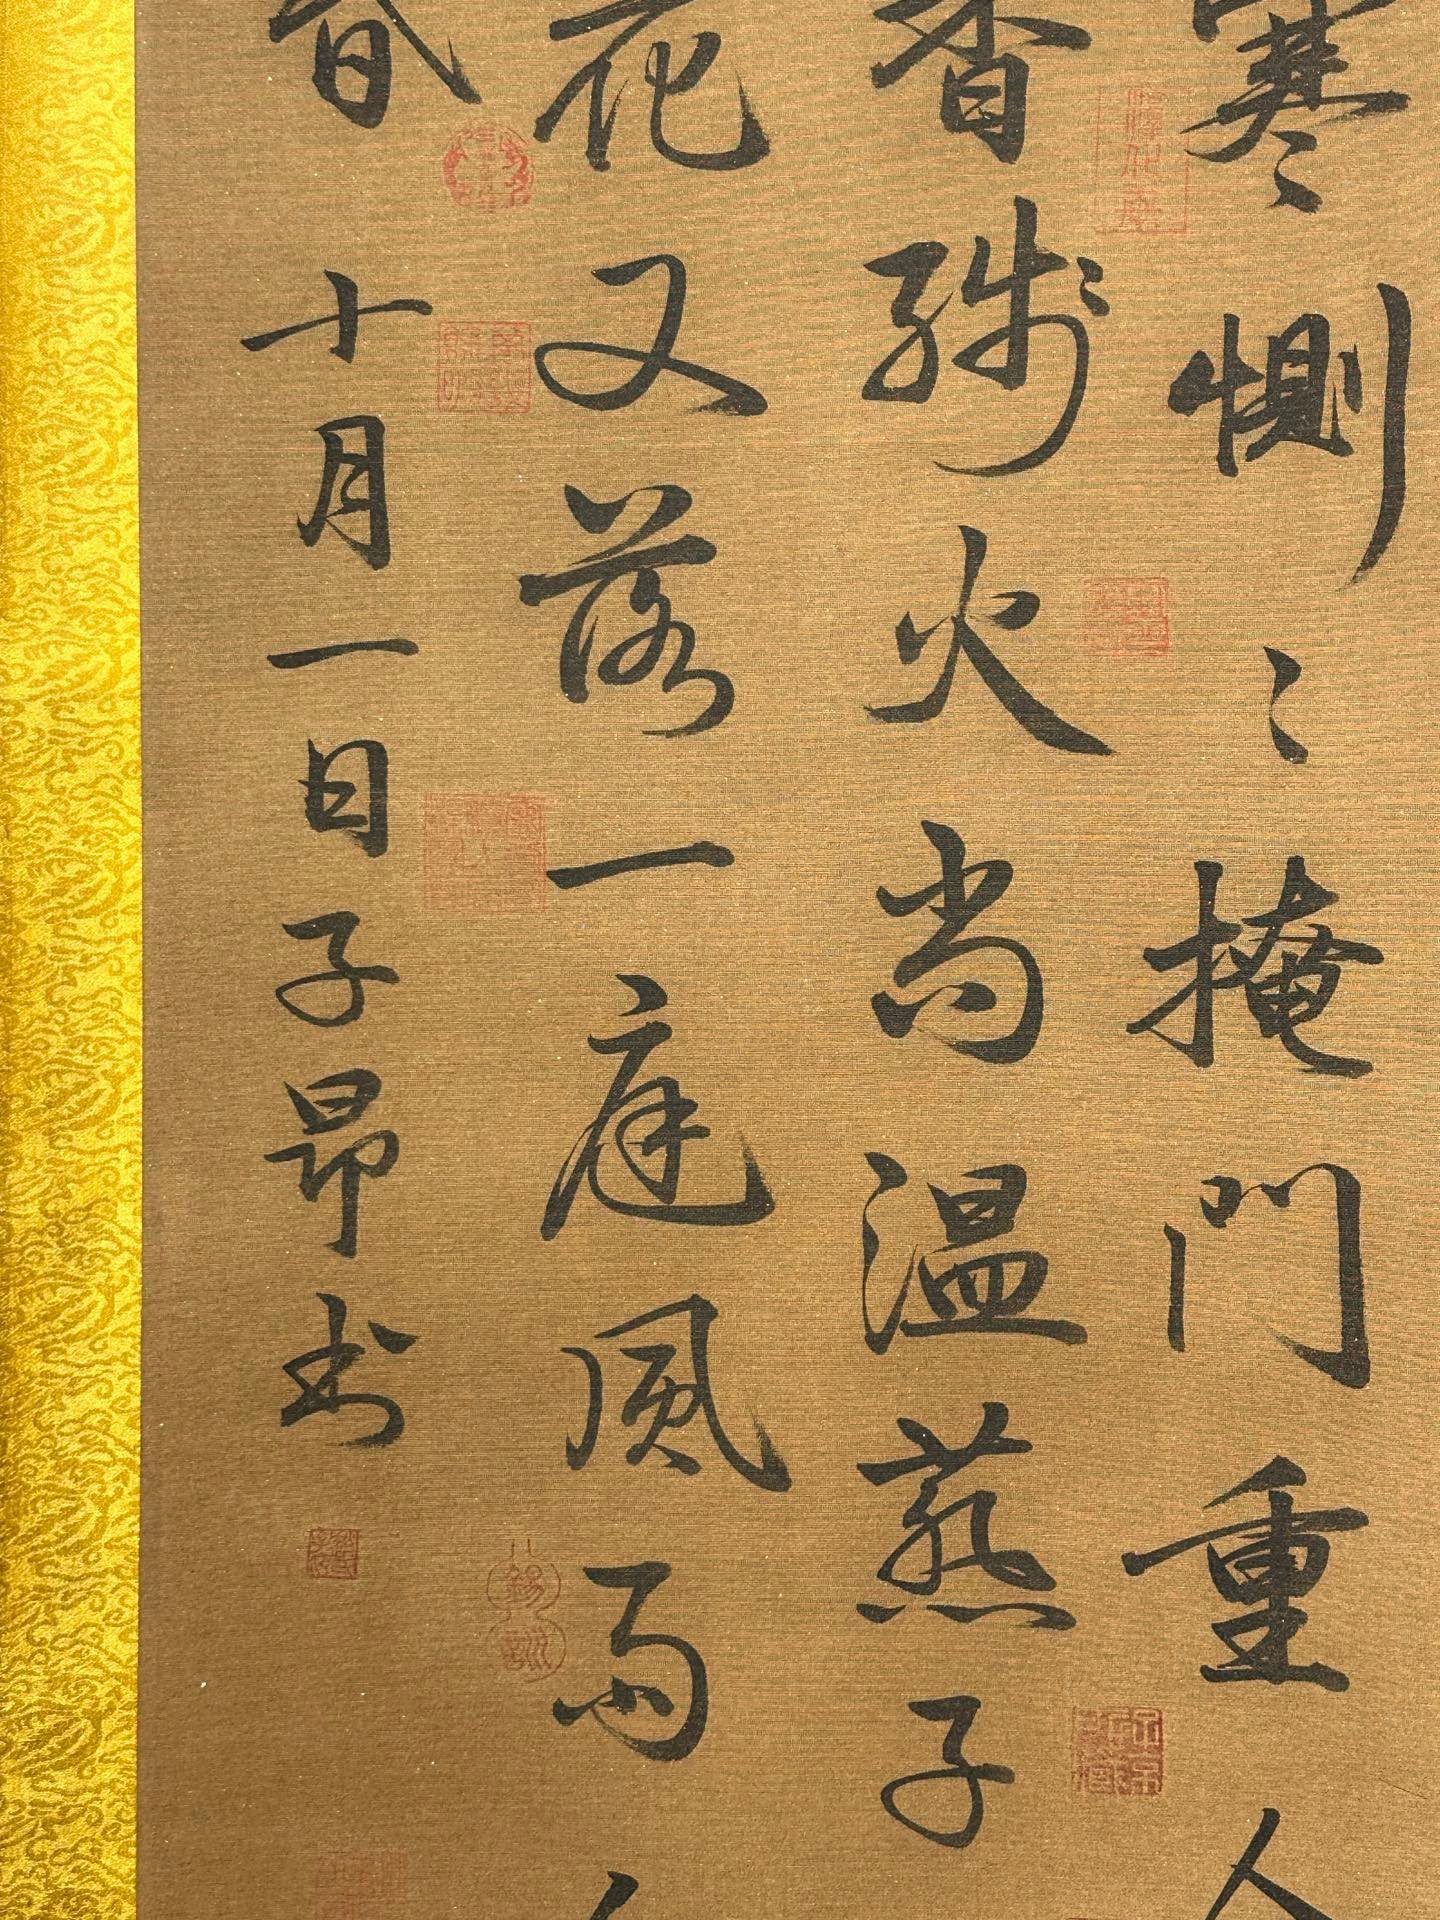 寒恻〻掩門重人
香殘火尚温燕子
花又落一庭風雨
春十月一日子昂书